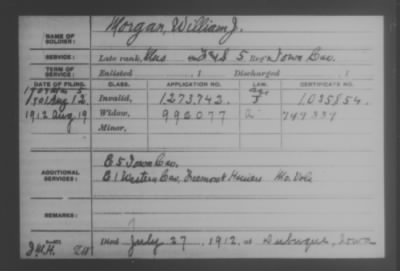 NAME OF SOLDIER: Morgan, William J.
SERVICE: Late rank, Mus F&S 5 Reg't Iowa Cav.
TERM OF SERVICE: Enlisted , 1 Discharged , 1
DATE OF FILING. CLASS. APPLICATION NO. LAW. CERTIFICATE NO.
1901 Aug 12. Invalid, 1273.742. 1035854.
1912 Aug 19 Widow, 990077 747337
Minor,
ADDITIONAL SERVICES: E 5 Iowa Cav.
C 1 Western Cav, Fremont Mo. Vols
REMARKS:
Died July 27, 1912, at Dubuque, Iowa